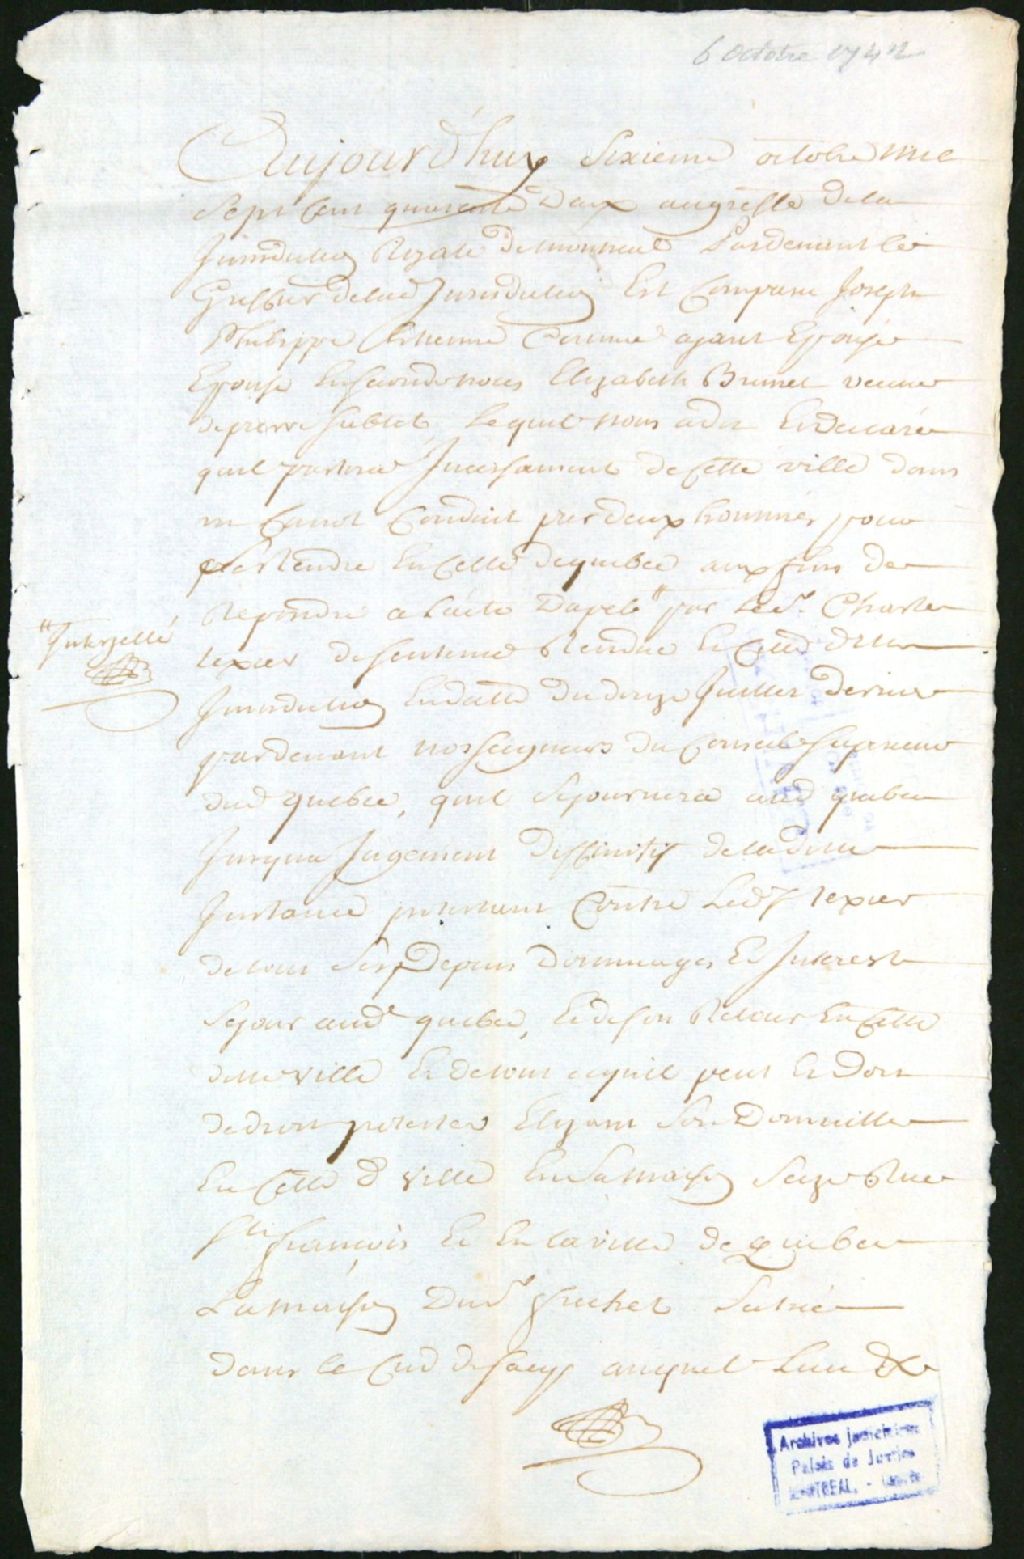 6 octobre 1742
Aujourd'huy sixieme octobre mil
sept cent quarente deux au greffe de la
Jurisdiction Royale de montreal Pardevant le
Greffier de lad Jurisdiction Est Comparu Joseph
Philippe Etienne Comme ayant Epousé
Epouse En secondes noces Elizabeth Brunet veuve
de pierre Lequel nous a dit Et declaré
quil partira Incessament de Cette ville dans
un Canot Conduit par deux hommes pour
se rendre En Celle de quebec aux fins de
Repondre a Lacte Dapel " par Le Sr. Charle
texier de sentence Rendue En Cette ditte
"Interjetté
Jurisdiction En datte du douze Juillet dernier
pardevant nosseigneurs du Conseil superieur
dud quebec, quil sejournera aud quebec
Jusqua Jugement deffinitif de la ditte
Instance protestant Contre Led Sr texier
de tous ses Depens Dommages Et Interests
sejour aud quebec, Et de son Retour En Cette
ditte ville Et de tout ce quil peut Et doit
de droit protester Elisant son Domicille
En Cette d ville En sa maison size Rue
St françois Et En la ville de quebec
La maison du Sr situé
dans le Cud de sacq auquel Lieu &c
Archives judiciaires
Palais de Justice
MONTREAL. -